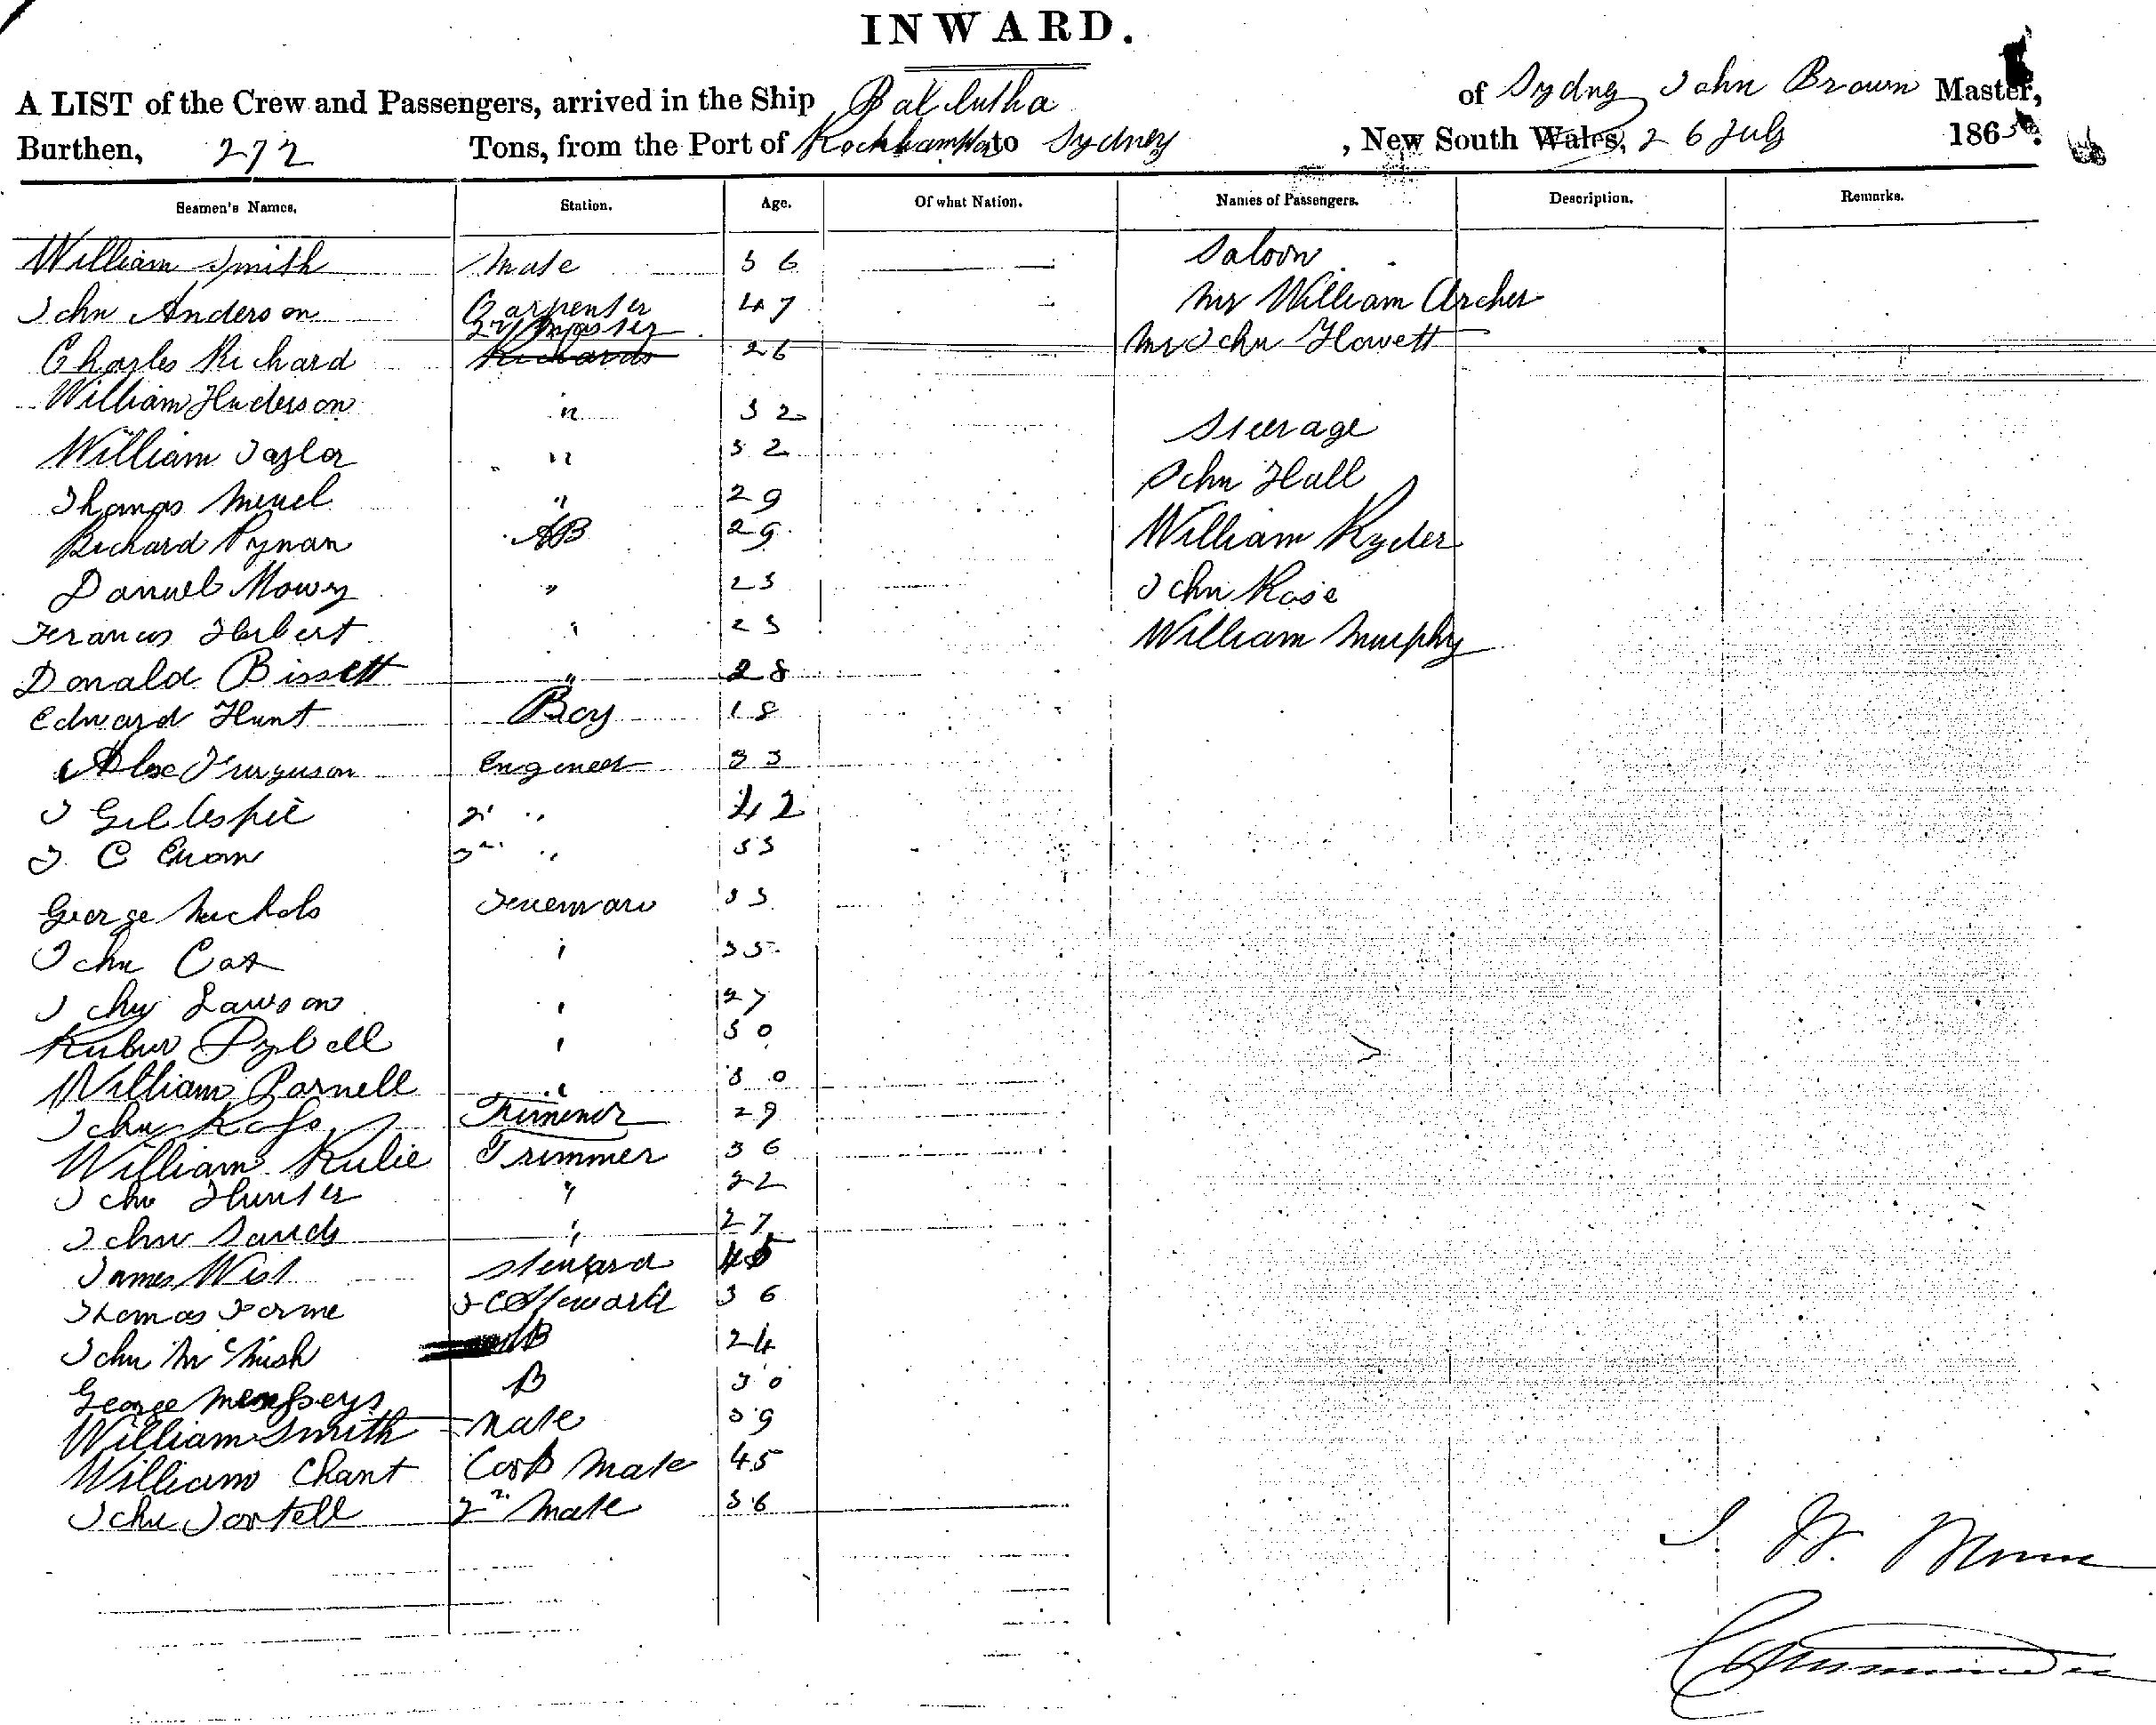 INWARD.
A LIST of the Crew and Passengers, arrived in the Ship Balclutha of Sydney John Brown Master,
Burthen, 272 Tons, from the Port of Rockhampton to Sydney, New South Wales, 26 July 186
Seamen's Names. Station. Age. Of what Nation. Names of Passengers. Description. Remarks.
William Smith Mate 36 Saloon
John Anderson Carpenter 47 Mr William Archer
Charles Richard 26 Mr John Howett
William Huderson " 32
Steerage
William Taylor " 32
John Hall
Thomas " 29
Richard Pynan AB 29 William Ryder
Daniel Mowy " 23 John Rose
Francis Herbert " 23 William Murphy
Donald Bissett " 28
Edward Hunt Boy 18
Alex Ferguson Engineer 33
J Gillespie 2 " 42
J. C 3 " 33
George Nichols 33
John Cox " 35
John Lawson " 27
Pybell " 30
William Parnell " 30
John Trimmer 29
William Trimmer 36
John Hunter " 22
John Sands " 27
James West Steward 45
Thomas Steward 36
John 24
George 30
William Smith Mate 39
William Chant Mate 45
John 2n Mate 36
J W.
Commander